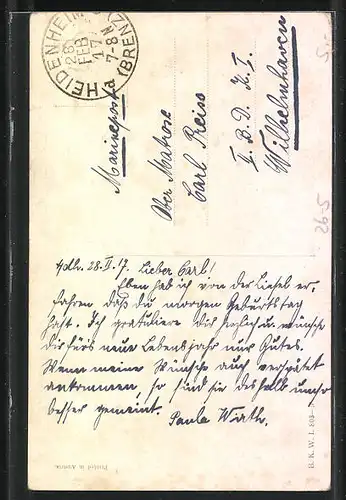 HEIDENHEIM
(BRENZ)
28 FEB 17
7-8 N
Marinepost
Ober Matrose
Carl Reiso
I. B. D. K. I.
Wilhelmhaven
Hdh. 28.II.17. Lieber Carl!
Eben hab ich von der Liesel er-
fahren daß du morgen Geburtstag
hast. Ich gratuliere Dir herzlich u. wünsche
Dir fürs neue Lebensjahr nur Gutes.
Wenn meine Wünsche auch verspätet
ankommen, so sind sie deshalb umso
besser gemeint. Paula Wirth.
Printed in Austria.
B. K. W. I. 863-